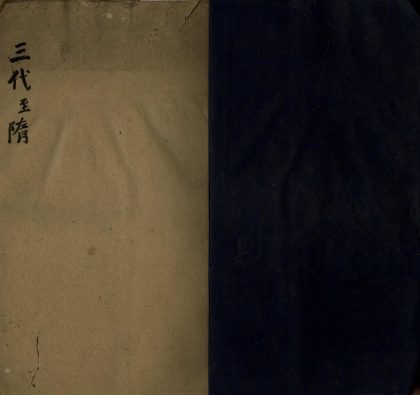 三代至隋